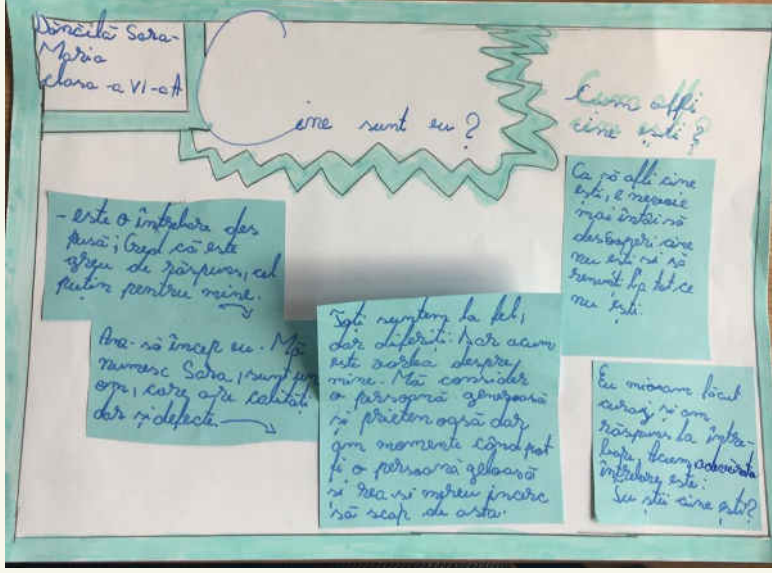 Dăncilă Sara-
Maria
clasa -a VI-a A
Cine sunt eu ?
Cum afli
cine ești ?
- este o întrebare des
pusă; Cred că este
greu de răspuns, cel
puțin pentru mine.
Am să încep eu. Mă
numesc Sara, sunt un
om, care are calități
dar și defecte.
Toți suntem la fel,
dar diferiți. Dar acum
este vorba despre
mine. Mă consider
o persoană generoasă
și prietenoasă dar
am momente când pot
fi o persoană geloasă
și rea și mereu încerc
să scap de asta.
Ca să afli cine
ești, e nevoie
mai întâi să
descoperi cine
nu ești și să
renunți la tot ce
nu ești.
Eu mi-am făcut
curaj și am
răspuns la între-
bare, acum adevărata
întrebare este:
Tu știi cine ești?